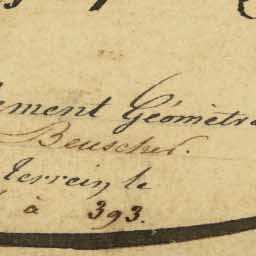 ement Géomètr
Beuscher.
terrein le
à 393.